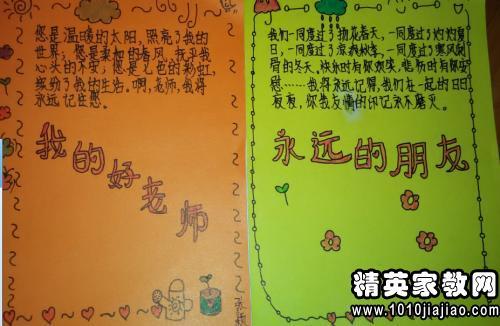 您是温暖的太阳，照亮了我的
世界；您是柔和的春风，抚平我
心头的不安；您是七色的彩虹，
缤纷了我的生活。啊，老师，我将
永远记住您。
我的好老师
我们一同度过了
春天，一同度过了
日，一同度过了凉秋，一同度过了寒风刺
骨的冬天。快乐时有你欢笑，悲伤时有你安
慰……我将永远记得，我们在一起的日日
夜夜，你我友情的印记永不磨灭。
永远的朋友
精英家教网
www.1010jiajiao.com